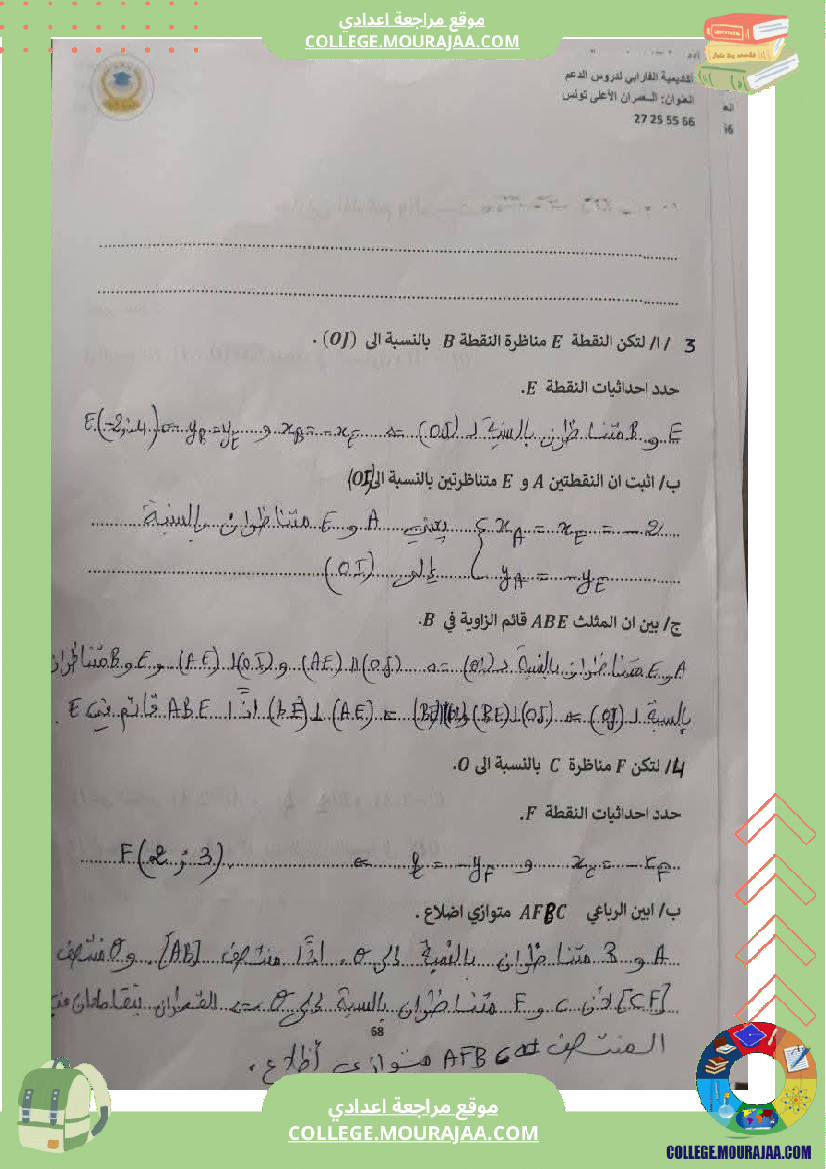 موقع مراجعة اعدادي
COLLEGE.MOURAJAA.COM
أكاديمية الفارابي لدروس الدعم
العنوان: العمران الأعلى تونس
27 25 55 66
3 /ا/ لتكن النقطة E مناظرة النقطة B بالنسبة الى (OJ) .
حدد احداثيات النقطة E.
E و B متناظران بالنسبة لـ (OJ) ⇒ xB = -xE و yB = yE ⇒ E(-2; 4)
ب/ اثبت ان النقطتين A و E متناظرتين بالنسبة الى (OI)
xA = xE = -2 يعني A و E متناظران بالنسبة
yA = -yE إلى (OI)
ج/ بين ان المثلث ABE قائم الزاوية في B.
A و E متناظران بالنسبة لـ (OI) ⇒ (AE) // (OJ) و (AE) ⊥ (OI) و E و B متناظران
بالنسبة لـ (OJ) ⇒ (BE) ⊥ (OJ) ⇒ (AE) ⊥ (BE) اذًا ABE قائم في E .
4/ا لتكن F مناظرة C بالنسبة الى O.
حدد احداثيات النقطة F.
xC = -xF و yC = -yF ⇒ F(2 ; 3)
ب/ ابين الرباعي AFBC متوازي اضلاع .
A و B متناظران بالنسبة إلى O. اذًا منتصف [AB]. و O منتصف
[CF] لأن C و F متناظران بالنسبة إلى O ⇒ القطران يتقاطعان في
68
المنتصف AFBC متوازي أظلاع .
موقع مراجعة اعدادي
COLLEGE.MOURAJAA.COM
COLLEGE.MOURAJAA.COM